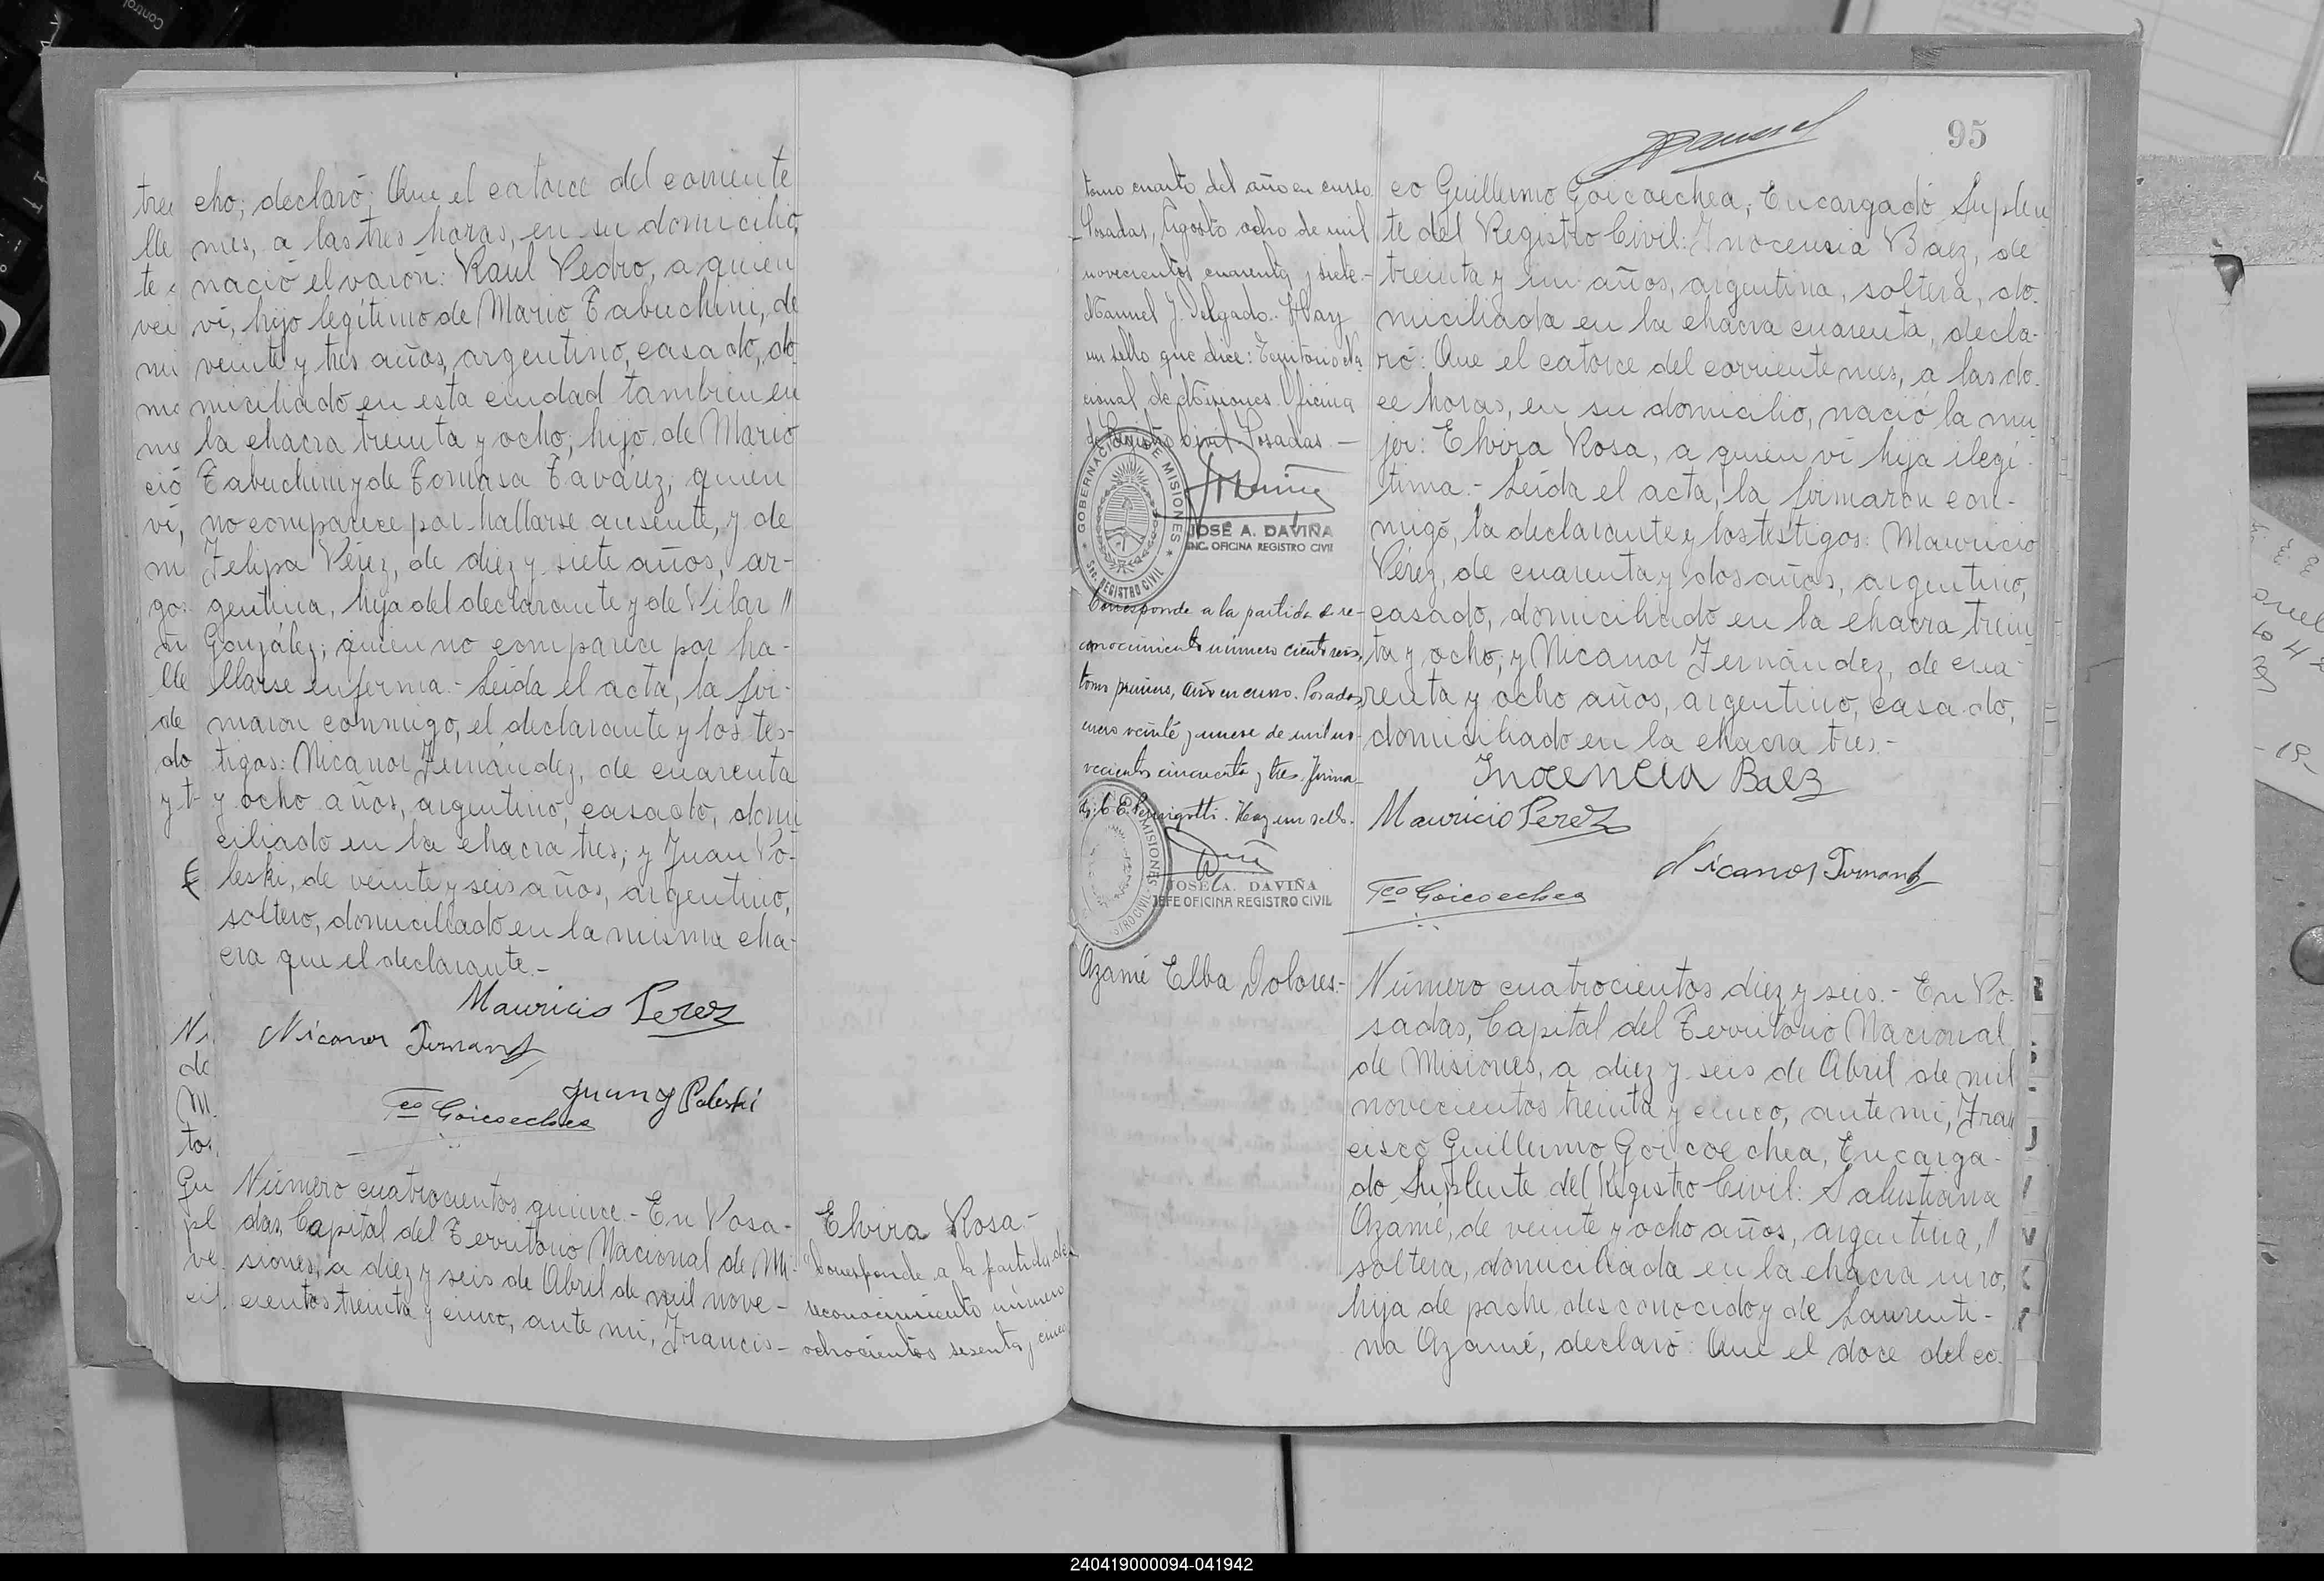 cho; declaró: Que el catorce del corriente
mes, a las tres horas, en su domicilio,
nació el varón: Raul Pedro, a quien
ví, hijo legítimo de Mario Tabuchini, de
veinte y tres años, argentino, casado, do
miciliado en esta ciudad tambien en
la chacra treinta y ocho; hijo de Mario
Tabuchini y de Tomasa Tavárez; quien
no comparece por hallarse ausente, y de
Felipa Pérez, de diez y siete años, ar-
gentina, hija del declarante y de Pilar //
González; quien no comparece por ha-
llarse enferma.- Leída el acta, la fir-
maron conmigo, el declarante y los tes-
tigos: Nicanor Fernández, de cuarenta
y ocho años, argentino, casado, domi
ciliado en la chacra tres; y Juan Po-
leski, de veinte y seis años, argentino,
soltero, domiciliado en la misma cha-
cra que el declarante.-
Mauricio Perez
Nicanor Fernand
Juan Poleski
Fco Goicoechea
Número cuatrocientos quince.- En Posa-
das, Capital del Territorio Nacional de Mi-
siones, a diez y seis de Abril de mil nove-
cientos treinta y cinco, ante mi, Francis-
Elvira Rosa.-
Corresponde a la partida de
reconocimiento número
ochocientos sesenta y cinco
95
tomo cuarto del año en curso.
Posadas, Agosto ocho de mil
novecientos cuarenta y siete.-
Manuel J. Delgado.- Hay
un sello que dice: Territorio Na
cional de Misiones. Oficina
de Registro Civil Posadas.-
GOBERNACION DE MISIONES
REGISTRO CIVIL
JOSÉ A. DAVIÑA
ENC. OFICINA REGISTRO CIVIL
Corresponde a la partida de re-
conocimiento número ciento seis,
tomo primero, año en curso. Posadas,
enero veinte y nueve de mil no-
vecientos cincuenta y tres. Firma-
Hay un sello.
MISIONES
JOSE A. DAVIÑA
JEFE OFICINA REGISTRO CIVIL
co Guillermo Goicoechea, Encargado Suplen
te del Registro Civil: Inocencia Baez, de
treinta y un años, argentina, soltera, do-
miciliada en la chacra cuarenta, decla-
ró: Que el catorce del corriente mes, a las do-
ce horas, en su domicilio, nació la mu
jer: Elvira Rosa, a quien ví hija ilegí-
tima.- Leída el acta, la firmaron con-
migo, la declarante y los testigos: Mauricio
Pérez, de cuarenta y dos años, argentino,
casado, domiciliado en la chacra trein
ta y ocho; y Nicanor Fernández, de cua-
renta y ocho años, argentino, casado,
domiciliado en la chacra tres.-
Inocencia Baez
Mauricio Perez
Nicanor Fernand
Fco Goicoechea
Azamé Elba Dolores.-
Número cuatrocientos diez y seis.- En Po-
sadas, Capital del Territorio Nacional
de Misiones, a diez y seis de Abril de mil
novecientos treinta y cinco, ante mi, Fran
cisco Guillermo Goicoechea, Encarga-
do Suplente del Registro Civil: Salustiana
Azamé, de veinte y ocho años, argentina, //
soltera, domiciliada en la chacra uno,
hija de padre desconocido y de Laurenti-
na Azamé, declaró: Que el doce del co-
240419000094-041942